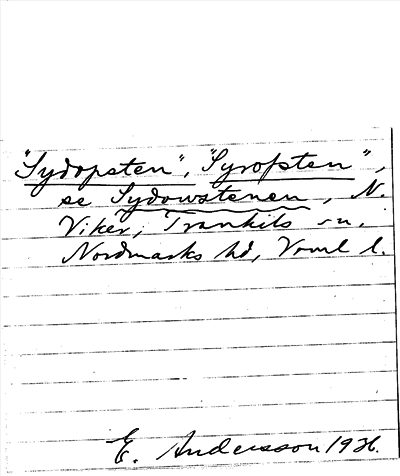 "Sydopsten", "Syropsten",
se Sydowstenen, N.
Viker, Trankils sn,
Nordmarks hd, Värml l.
E. Andersson 1936.